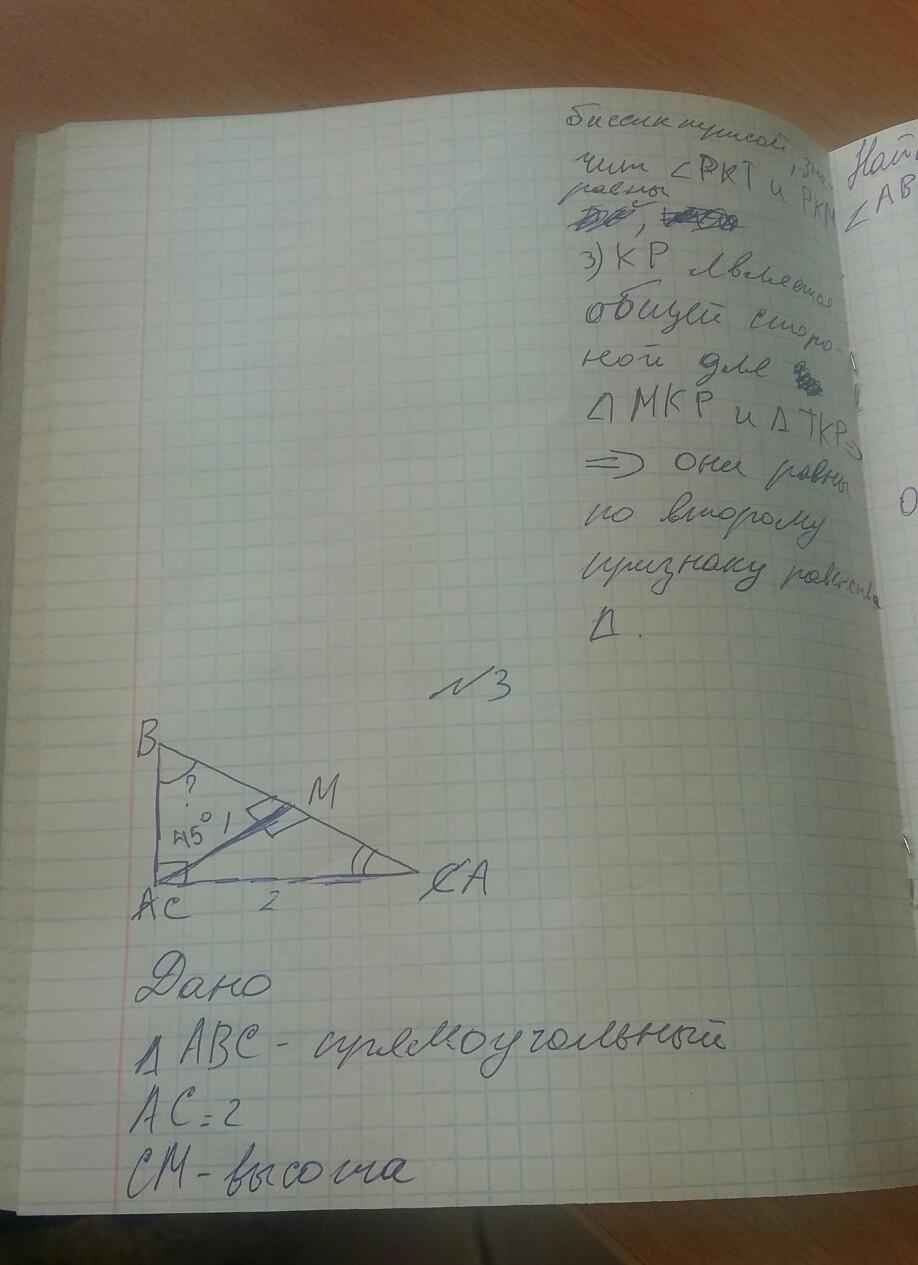 биссектрисой, зна-
чит ∠PKT и PKM
равны
3) KP является
общей сторо-
ной для
Δ MKP и Δ TKP⇒
⇒ они равны
по второму
признаку равенства
Δ.
№3
B
?
M
45° 1
C
2
A
Дано
Δ ABC - прямоугольный
AC=2
CM - высота
Най
∠AB
О